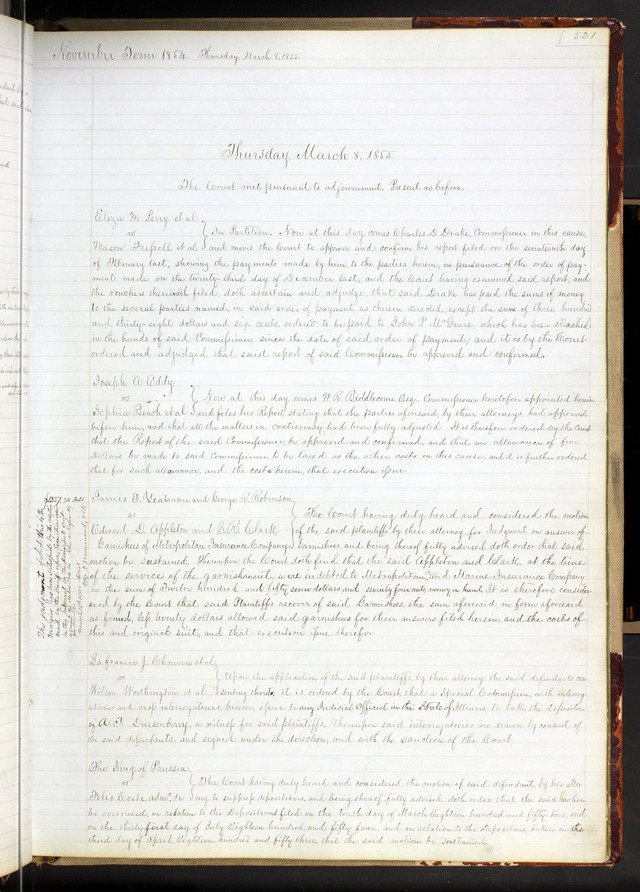 321
November Term 1854. Thursday, March 8, 1855.
Thursday March 8, 1855.
The Court met pursuant to adjournment. Present as before.
Eliza M. Perry et al
vs
In Partition. Now at this day comes Charles D. Drake, Commissioner in this cause,
Mason Frissell et al and moves the Court to approve and confirm his report filed on the seventeenth day
of February last, showing the payments made by him to the parties herein, in pursuance of the order of pay-
ment made on the twenty third day of December last, and the Court having examined said report, and
the vouchers therewith filed, doth ascertain and adjudge that said Drake has paid the sums of money
to the several parties named, in said order of payment as therein directed, except the sum of three hundred
and thirty eight dollars and six cents, ordered to be paid to John P. McGuire, which has been attached
in the hands of said Commissioner, since the date of said order of payment; and it is by the Court
ordered and adjudged that said report of said Commissioner be approved and confirmed.
Joseph A. Eddy
vs
Now at this day comes W. R. Biddlecome Esq. Commissioner heretofore appointed herein
Sophia Beach et al and files his Report, stating that the parties aforesaid, by their attorneys, had appeared
before him, and that all the matters in controversy had been fully adjusted. It is therefore ordered by the Court
that the Report of the said Commissioner, be approved and confirmed, and that an allowance of five
Dollars be made to said Commissioner, to be taxed as the other costs in this cause, and it is further ordered
that for such allowance, and the costs herein, that execution issue.
James E. Yeatman and George R. Robinson
vs
The Court having duly heard and considered the motion
Edward D. Appleton and E. R. Clark of the said plaintiffs by their attorney, for Judgment on answer of
Garnishees of Metropolitan Insurance Company Garnishees, and being thereof fully advised doth order that said
motion be sustained, Thereupon the Court doth find that the said Appleton and Clark, at the time
of the service of the garnishment, were indebted to Metropolitan and Marine Insurance Company
in the sum of Twelve hundred and fifty seven dollars and seventy four cents, money in hand. It is therefore consider-
ed by the Court that said Plaintiffs recover of said Garnishees, the sum aforesaid, in form aforesaid
as found, less twenty dollars allowed said garnishees for their answers filed herein and the costs of
this and original suit, and that execution issue therefor
$1257 74
The Judgment of which this is the
Lafrenier J. Chouvin et al
vs
Upon the application of the said plaintiffs, by their attorney, the said defendants con-
Wilson Worthington et al senting thereto, it is ordered by the Court, that a Special Commission with interrog-
atories and cross interrogatories, herein, issue to any Judicial Officer in the State of Illinois, to take the Deposition
of A. T. Duesenberry, a witness for said plaintiffs. Thereupon said interrogatories are drawn by consent of
the said defendants, and signed under the direction, and with the sanction of the Court.
The King of Prussia
vs
The Court having duly heard and considered, the motion of said defendant, by his attor-
Felix Coste, admr. &c ney to suppress depositions, and being thereof fully advised doth order that the said motion
be overruled, in relation to the Depositions filed on the tenth day of March Eighteen hundred and fifty two, and
on the thirty first day of July Eighteen hundred and fifty four, and in relation to the Depositions, taken on the
third day of April Eighteen hundred and fifty three that the said motion be sustained.